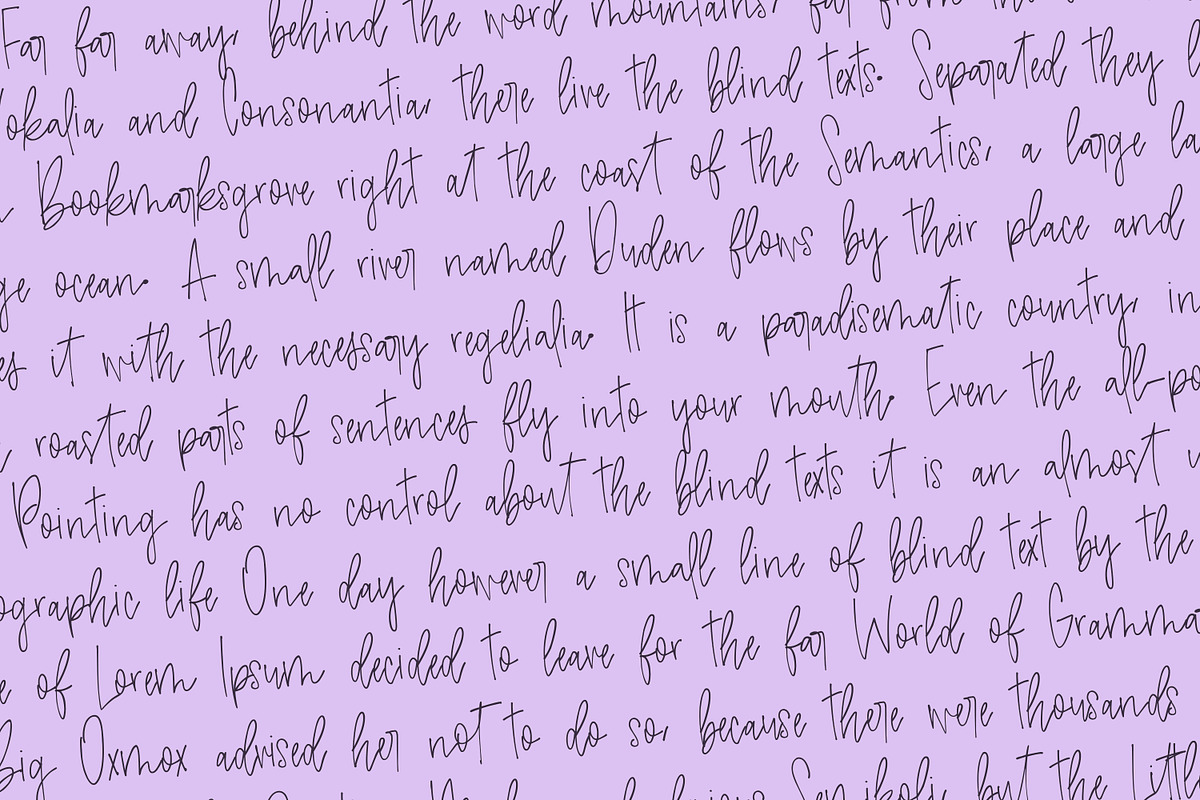 Far far away, behind the word mountains, far from the
okalia and Consonantia, there live the blind texts. Separated they l
Bookmarksgrove right at the coast of the Semantics, a large la
ge ocean. A small river named Duden flows by their place and
es it with the necessary regelialia. It is a paradisematic country, in
roasted parts of sentences fly into your mouth. Even the all-po
Pointing has no control about the blind texts it is an almost u
ographic life One day however a small line of blind text by the
e of Lorem Ipsum decided to leave for the far World of Gramma
Big Oxmox advised her not to do so, because there were thousands
but the Little